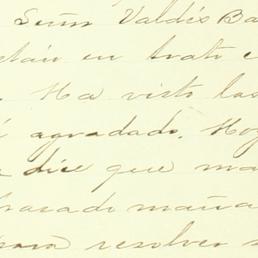 Señor Valdés Ba
están en trato c
. Ha visto las
é agradado. Hoy
dice que ma
pasado mañana
para resolver s